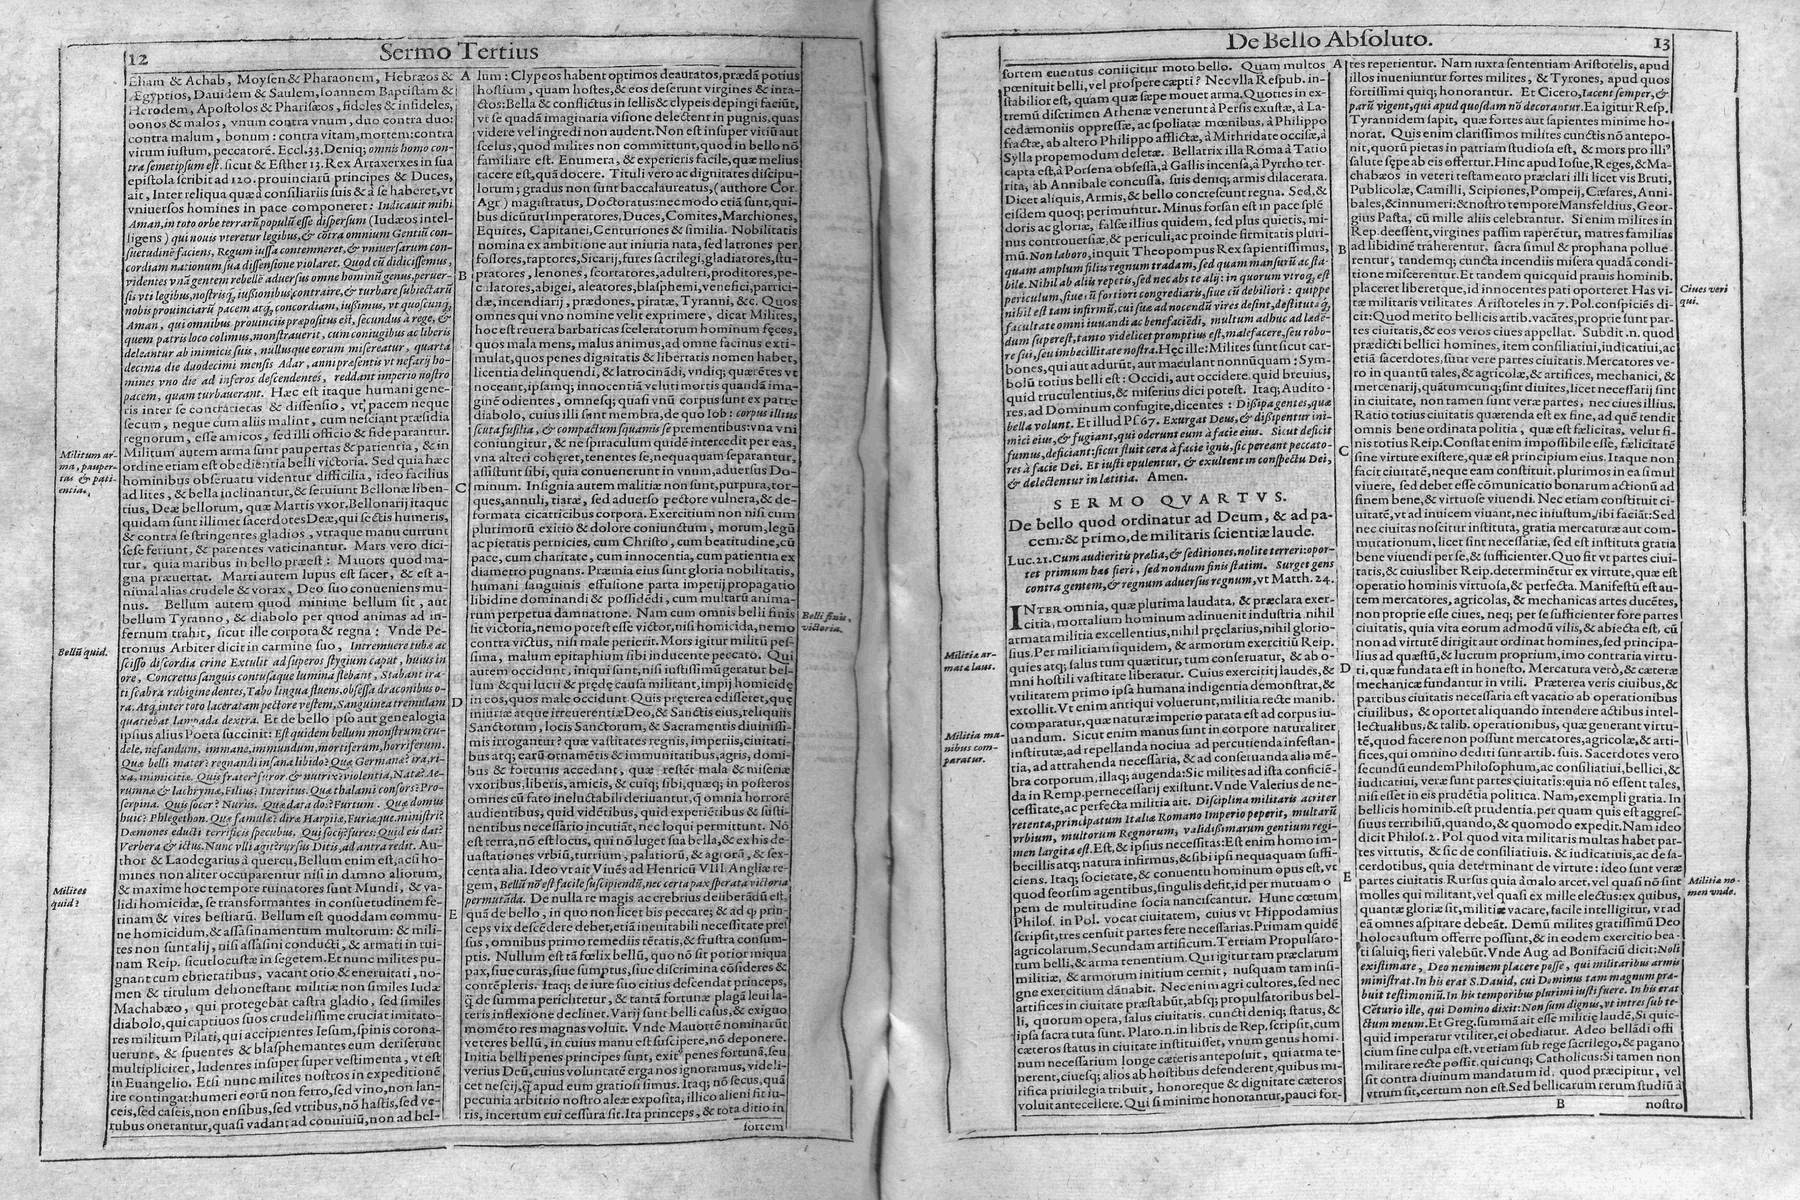 12
Sermo Tertius
Eliam & Achab, Moysen & Pharaonem, Hebræos &
Ægyptios, Dauidem & Saulem, Ioannem Baptistam &
Herodem, Apostolos & Pharisæos, fideles & infideles,
bonos & malos, vnum contra vnum, duo contra duo:
contra malum, bonum: contra vitam, mortem: contra
virum iustum, peccatorē. Eccl. 33. Deniq; omnis homo con-
tra semetipsum est. sicut & Esther 13. Rex Artaxerxes in sua
epistola scribit ad 120. prouinciarū principes & Duces,
ait, Inter reliqua quæ à consiliariis suis & à se haberet, vt
vniuersos homines in pace componeret: Indicauit mihi
Aman, in toto orbe terrarū populū esse dispersum (Iudæos intel-
ligens) qui nouis vteretur legibus, & cōtra omnium Gentiū con-
suetudinē faciens, Regum iussa contemneret, & vniuersarum con-
cordiam nationum sua dissensione violaret. Quod cū didicissemus,
videntes vnā gentem rebellē aduersus omne hominū genus, peruer-
sis vti legibus, nostrisq́; iußionibus contraire, & turbare subiectarū
nobis prouinciarū pacem atq́; concordiam, iussimus, vt quoscunq́;
Aman, qui omnibus prouinciis præpositus est, secundus à rege, &
quem patris loco colimus, monstrauerit, cum coniugibus ac liberis
deleantur ab inimicis suis, nullusque eorum misereatur, quarta
decima die duodecimi mensis Adar, anni præsentis vt nefarij ho-
mines vno die ad inferos descendentes, reddant imperio nostro
pacem, quam turbauerant. Hæc est itaque humani gene-
ris inter se contrarietas & dissensio, vt, pacem neque
secum, neque cum aliis malint, cum nesciant præsidia
regnorum, esse amicos, sed illi officio & fide parantur.
Militum autem arma sunt paupertas & patientia, & in
ordine etiam est obedientia belli victoria. Sed quia hæc
hominibus obseruatu videntur difficilia, ideo facilius
ad lites, & bella inclinantur, & seruiunt Bellonæ liben-
tius, Deæ bellorum, quæ Martis vxor. Bellonarij itaque
quidam sunt illimet sacerdotes Deæ, qui sectis humeris,
& contra se stringentes gladios, vtraque manu currunt
sese feriunt, & parentes vaticinantur. Mars vero dici-
tur, quia maribus in bello præest: Mauors quod ma-
gna præuertat. Marti autem lupus est sacer, & est a-
nimal alias crudele & vorax, Deo suo conueniens mu-
nus. Bellum autem quod minime bellum sit, aut
bellum Tyranno, & diabolo per quod animas ad in-
fernum trahit, sicut ille corpora & regna: Vnde Pe-
tronius Arbiter dicit in carmine suo, Intremuere tubæ ac
scisso discordia crine Extulit ad superos stygium caput, huius in
ore, Concretus sanguis contusaque lumina flebant, Stabant ira-
ti scabra rubigine dentes, Tabo lingua fluens, obsessa draconibus o-
ra. Atq́; inter toto laceratam pectore vestem, Sanguinea tremulam
quatiebat lampada dextra. Et de bello ipso aut genealogia
ipsius alius Poeta succinit: Est quidem bellum monstrum cru-
dele, nefandum, immane, immundum, mortiferum, horriferum.
Quæ belli mater? regnandi insana libido? Quæ Germanæ? ira, ri-
xa, inimicitiæ. Quis frater? furor, & nutrix? violentia, Natæ? Ae-
rumnæ & lachrymæ, Filius? Interitus. Quæ thalami consors? Pro-
serpina. Quis socer? Nereus. Quæ data dos? Furtum. Quæ domus
huic? Phlegethon. Quæ famulæ? diræ Harpiiæ, Furiæque. ministri?
Dæmones educti terrificis specubus. Qui socij? fures. Quid eis dat?
Verbera & ictus. Nunc vlli agit? rursus Ditis, ad antra redit. Au-
thor & Laodegarius à quercu, Bellum enim est, acsi ho-
mines non aliter occuparentur nisi in damno aliorum,
& maxime hoc tempore ruinatores sunt Mundi, & va-
lidi homicidæ, se transformantes in consuetudinem fe-
rinam & vires bestiarū. Bellum est quoddam commu-
ne homicidum, & assasinamentum multorum: & mili-
tes non sunt alij, nisi assasini conducti, & armati in rui-
nam Reip. sicut locustæ in segetem. Et nunc milites pu-
gnant cum ebrietatibus, vacant otio & eneruitati, no-
men & titulum dehonestant militiæ non similes Iudæ
Machabæo, qui protegebat castra gladio, sed similes
diabolo, qui captiuos suos crudelissime cruciat imitato-
res militum Pilati, qui accipientes Iesum, spinis corona-
uerunt, & spuentes & blasphemantes eum deriserunt
multipliciter, ludentes insuper super vestimenta, vt est
in Euangelio. Etsi nunc milites nostros in expeditionē
ire contingat: humeri eorū non ferro, sed vino, non lan-
ceis, sed caseis, non ensibus, sed vtribus, nō hastis, sed ve-
rubus onerantur, quasi vadant ad conuiuiū, non ad bel-
Militum ar-
ma, pauper-
tas & pati-
entia.
Bellū quid.
Milites
quid?
A
B
C
D
E
lum: Clypeos habent optimos deauratos, prædā potius
hostium, quam hostes, & eos deferunt virgines & inta-
ctos: Bella & conflictus in sellis & clypeis depingi faciūt,
vt se quadā imaginaria visione delectent in pugnis, quas
videre vel ingredi non audent. Non est insuper vitiū aut
scelus, quod milites non committunt, quod in bello nō
familiare est. Enumera, & experieris facile, quæ melius
tacere est, quā docere. Tituli vero ac dignitates discipu-
lorum; gradus non sunt baccalaureatus, (authore Cor.
Agr.) magistratus, Doctoratus: nec modo etiā sunt, qui-
bus dicūtur Imperatores, Duces, Comites, Marchiones,
Equites, Capitanei, Centuriones & similia. Nobilitatis
nomina ex ambitione aut iniuria nata, sed latrones per
fossores, raptores, Sicarij, fures sacrilegi, gladiatores, stu-
pratores, lenones, scortatores, adulteri, proditores, pe-
culatores, abigei, aleatores, blasphemi, venefici, parrici-
dæ, incendiarij, prædones, piratæ, Tyranni, &c. Quos
omnes qui vno nomine velit exprimere, dicat Milites,
hoc est reuera barbaricas sceleratorum hominum fęces,
quos mala mens, malus animus, ad omne facinus exti-
mulat, quos penes dignitatis & libertatis nomen habet,
licentia delinquendi, & latrocināndi, vndiq; quærētes vt
noceant, ipsamq; innocentiā veluti mortis quandā ima-
ginē odientes, omnesq; quasi vnū corpus sunt ex patre
diabolo, cuius illi sunt membra, de quo Iob: corpus illius
scuta fusilia, & compactum squamis se prementibus: vna vni
coniungitur, & ne spiraculum quidē intercedit per eas,
vna alteri cohæret, tenentes se, nequaquam separantur,
assistunt sibi, quia conuenerunt in vnum, aduersus Do-
minum. Insignia autem malitiæ non sunt, purpura, tor-
ques, annuli, tiaræ, sed aduerso pectore vulnera, & de-
formata cicatricibus corpora. Exercitium non nisi cum
plurimorū exitio & dolore coniunctum, morum, legū
ac pietatis pernicies, cum Christo, cum beatitudine, cū
pace, cum charitate, cum innocentia, cum patientia ex
diametro pugnans. Præmia eius sunt gloria nobilitatis,
humani sanguinis effusione parta imperij propagatio
libidine dominandi & possidēdi, cum multarū anima-
rum perpetua damnatione. Nam cum omnis belli finis
sit victoria, nemo potest esse victor, nisi homicida, nemo
contra victus, nisi male perierit. Mors igitur militū pes-
sima, malum epitaphium sibi inducente peccato. Qui
autem occidunt, iniqui sunt, nisi iustissimū geratur bel-
lum & qui lucri & prędę causa militant, impij homicidę
in eos, quos male occidunt. Quis pręterea edisseret, quę
iniuriæ atque irreuerentiæ Deo, & Sanctis eius, reliquiis
Sanctorum, locis Sanctorum, & Sacramentis diuinissi-
mis irrogantur? quæ vastitates regnis, imperiis, ciuitati-
bus atq; earū ornamētis & immunitatibus, agris, domi-
bus & fortunis accedant, quæ restēt mala & miseriæ
vxoribus, liberis, amicis, & cuiq; sibi, quæq; in posteros
omnes cū fato ineluctabili deriuantur, q̄ omnia horrorē
audientibus, quid vidētibus, quid experiētibus & susti-
nentibus necessario incutiāt, nec loqui permittunt. Nō
est terra, nō est locus, qui nō luget sua bella, & ex his de-
uastationes vrbiū, turrium, palatiorū, & agrorū, & sex-
centa alia. Ideo vt ait Viuēs ad Henricū VIII. Angliæ re-
gem, Bellū nō est facile suscipiendū, nec certa pax sperata victoria
permutāda. De nulla re magis ac crebrius deliberādū est
quā de bello, in quo non licet bis peccare; & ad q; prin-
ceps vix descēdere debet, etiā ineuitabili necessitate pres-
sus, omnibus primo remediis tētatis, & frustra consum-
ptis. Nullum est tā fœlix bellū, quo nō sit potior iniqua
pax, siue curas, siue sumptus, siue discrimina cōsideres &
contēpleris. Itaq; de iure suo citius descendat princeps,
q̄ de summa periclitetur, & tantā fortunæ plagā leui la-
teris inflexione declinet. Varij sunt belli casus, & exiguo
momēto res magnas voluit. Vnde Mauortē nominarūt
veteres bellū, in cuius manu est suscipere, nō deponere.
Initia belli penes principes sunt, exit' penes fortunā, seu
verius Deū, cuius voluntatē erga nos ignoramus, videli-
cet nescij, q̄ apud eum gratiosissimus. Itaq; nō secus, quā
pecunia arbitrio nostro aleæ exposita, illico alieni fit iu-
ris, incertum cui cessura sit. Ita princeps, & tota ditio in
fortem
Belli finis,
victoria.
De Bello Absoluto.
13
fortem euentus coniicitur moto bello. Quam multos
pœnituit belli, vel prospere cœpti? Nec vlla Respub. in-
stabilior est, quam quæ sæpe mouet arma. Quoties in ex-
tremū discrimen Athenæ venerunt à Persis exustæ, à La-
cedæmoniis oppressæ, ac spoliatæ mœnibus, à Philippo
fractæ, ab altero Philippo afflictæ, à Mithridate occisæ, à
Sylla propemodum deletæ. Bellatrix illa Roma à Tatio
capta est, à Porsena obsessa, à Gallis incensa, à Pyrrho ter-
rita, ab Annibale concussa, suis deniq; armis dilacerata.
Dicet aliquis, Armis, & bello concrescunt regna. Sed, &
eisdem quoq; perimuntur. Minus forsan est in pace splē
doris ac gloriæ, falsæ illius quidem, sed plus quietis, mi-
nus controuersiæ, & periculi, ac proinde firmitatis pluri-
mū. Non laboro, inquit Theopompus Rex sapientissimus,
quam amplum filiis regnum tradam, sed quam mansurū ac sta-
bile. Nihil ab aliis repetis, sed nec abs te alij: in quorum vtroq́; est
periculum, siue cū fortiori congrediaris, siue cū debiliori: quippe
nihil est tam infirmū, cui suæ ad nocendū vires desint, destituta q́;
facultate omni iuuandi ac benefaciēdi, multum adhuc ad læde-
dum superest, tanto videlicet promptius est, malefacere, seu robo-
re sui, seu imbecillitate nostra. Hęc ille: Milites sunt sicut car-
bones, qui aut adurūt, aut maculant nonnūquam: Sym-
bolū totius belli est: Occidi, aut occidere. quid breuius,
quid truculentius, & miserius dici potest. Itaq; Audito-
res, ad Dominum confugite, dicentes: Dißipa gentes, quæ
bella volunt. Et illud Ps. 67. Exurgat Deus, & dißipentur ini-
mici eius, & fugiant, qui oderunt eum à facie eius. Sicut deficit
fumus, deficiant: sicut fluit cera à facie ignis, sic pereant peccato-
res à facie Dei. Et iusti epulentur, & exultent in conspectu Dei,
& delectentur in lætitia. Amen.
SERMO QVARTVS.
De bello quod ordinatur ad Deum, & ad pa-
cem: & primo, de militaris scientiæ laude.
Luc. 21. Cum audieritis prælia, & seditiones, nolite terreri: opor-
tet primum hæc fieri, sed nondum finis statim. Surget gens
contra gentem, & regnum aduersus regnum, vt Matth. 24.
INTER omnia, quæ plurima laudata, & præclara exer-
citia, mortalium hominum adinuenit industria nihil
armata militia excellentius, nihil pręclarius, nihil glorio-
sius. Per militiam siquidem, & armorum exercitiū Reip.
quies atq; salus tum quæritur, tum conseruatur, & ab o-
mni hostili vastitate liberatur. Cuius exercitij laudes, &
vtilitatem primo ipsa humana indigentia demonstrat, &
extollit. Vt enim antiqui voluerunt, militia recte manib.
comparatur, quæ naturæ imperio parata est ad corpus iu-
uandum. Sicut enim manus sunt in corpore naturaliter
institutæ, ad repellanda nociua ad percutienda infestan-
tia, ad attrahenda necessaria, & ad conseruanda alio mē-
bra corporum, illaq; augenda: Sic milites ad ista conficiē-
da in Remp. pernecessarij existunt. Vnde Valerius de ne-
cessitate, ac perfecta militia ait. Disciplina militaris acriter
retenta, principatum Italiæ Romano Imperio peperit, multarū
vrbium, multorum Regnorum, validissimarum gentium regi-
men largita est. Est, & ipsius necessitas: Est enim homo im-
becillis atq; natura infirmus, & sibi ipsi nequaquam suffi-
ciens. Itaq; societate, & conuentu hominum opus est, vt
quod seorsim agentibus, singulis defit, id per mutuam o
pem de multitudine socia nanciscantur. Hunc cœtum
Philos. in Pol. vocat ciuitatem, cuius vt Hippodamius
scripsit, tres censuit partes fere necessarias. Primam quidē
agricolarum. Secundam artificum. Tertiam Propulsato-
rum belli, & arma tenentium. Qui igitur tam præclarum
militiæ, & armorum initium cernit, nusquam tam insi-
gne exercitium dānabit. Nec enim agri cultores, sed nec
artifices in ciuitate præstabūt, absq; propulsatoribus bel-
li, quorum opera, salus ciuitatis. cuncti deniq; status, &
ipsa sacra tuta sunt. Plato. n. in libris de Rep. scripsit, cum
cæteros status in ciuitate instituisset, vnum genus homi-
num necessarium longe cæteris anteposuit, qui arma te-
nerent, ciuesq; alios ab hostibus defenderent, quibus mi-
rifica priuilegia tribuit, honoreque & dignitate cæteros
voluit antecellere. Qui si minime honorantur, pauci for-
Militiæ ar-
matæ laus.
Militia ma-
nibus com-
paratur.
A
B
C
D
E
tes reperientur. Nam iuxta sententiam Aristotelis, apud
illos inueniuntur fortes milites, & Tyrones, apud quos
fortissimi quiq; honorantur. Et Cicero, tacent semper, &
parū vigent, qui apud quosdam nō decorantur. Ea igitur Resp.
Tyrannidem sapit, quæ fortes aut sapientes minime ho-
norat. Quis enim clarissimos milites cunctis nō antepo-
nit, quorū pietas in patriam studiosa est, & mors pro illi'
salute sępe ab eis offertur. Hinc apud Iosue, Reges, & Ma-
chabæos in veteri testamento præclari illi licet vis Bruti,
Publicolæ, Camilli, Scipiones, Pompeij, Cæsares, Anni-
bales, & innumeri: & nostro tempore Mansfeldius, Geor-
gius Pasta, cū mille aliis celebrantur. Si enim milites in
Rep. deessent, virgines passim raperētur, matres familias
ad libidinē traherentur, sacra simul & prophana pollue-
rentur, tandemq; cuncta incendiis misera quadā condi-
tione miscerentur. Et tandem quicquid prauis hominib.
placeret liberetque, id innocentes pati oporteret Has vi-
tæ militaris vtilitates Aristoteles in 7. Pol. conspiciēs di-
cit: Quod merito bellicis artib. vacātes, proprie sunt par-
tes ciuitatis, & eos veros ciues appellat. Subdit. n. quod
prædicti bellici homines, item consiliatiui, iudicatiui, ac
etiā sacerdotes, sunt vere partes ciuitatis. Mercatores ve-
ro in quantū tales, & agricolæ, & artifices, mechanici, &
mercenarij, quātumcunq; sint diuites, licet necessarij sint
in ciuitate, non tamen sunt veræ partes, nec ciues illius.
Ratio totius ciuitatis quærenda est ex fine, ad quē tendit
omnis bene ordinata politia, quæ est fælicitas, velut fi-
nis totius Reip. Constat enim impossibile esse, fælicitatē
sine virtute existere, quæ est principium eius. Itaque non
facit ciuitatē, neque eam constituit, plurimos in ea simul
viuere, sed debet esse cōmunicatio bonarum actionū ad
finem bene, & virtuose viuendi. Nec etiam constituit ci-
uitatē, vt ad inuicem viuant, nec iniustum, sibi faciāt: Sed
nec ciuitas noscitur instituta, gratia mercaturæ aut com-
mutationum, licet sint necessariæ, sed est instituta gratia
bene viuendi per se, & sufficienter. Quo fit vt partes ciui-
tatis, & cuiuslibet Reip. determinētur ex virtute, quæ est
operatio hominis virtuosa, & perfecta. Manifestū est au-
tem mercatores, agricolas, & mechanicas artes ducētes,
non proprie esse ciues, neq; per se sufficienter fore partes
ciuitatis, quia vita eorum admodū vilis, & abiecta est, cū
non ad virtutē dirigit aut ordinat homines, sed principa-
lius ad quæstū, & lucrum proprium, imo contraria virtu-
ti, quæ fundata est in honesto. Mercatura verò, & cæteræ
mechanicæ fundantur in vtili. Præterea veris ciuibus, &
partibus ciuitatis necessaria est vacatio ab operationibus
ciuilibus, & oportet aliquando intendere actibus intel-
lectualibus, & talib. operationibus, quæ generant virtu-
tē, quod facere non possunt mercatores, agricolæ, & arti-
fices, qui omnino dediti sunt artib. suis. Sacerdotes vero
secundū eundem Philosophum, ac consiliatiui, bellici, &
iudicatiui, veræ sunt partes ciuitatis: quia nō essent tales,
nisi esset in eis prudētia politica. Nam, exempli gratia. In
bellicis hominib. est prudentia, per quam quis est aggres-
siuus terribiliū, quando, & quomodo expedit. Nam ideo
dicit Philos. 2. Pol. quod vita militaris multas habet par-
tes virtutis, & sic de consiliatiuis. & iudicatiuis, ac de sa-
cerdotibus, quia determinant de virtute: ideo sunt veræ
partes ciuitatis Rursus quia à malo arcet. vel quasi nō sint
molles qui militant, vel quasi ex mille electus: ex quibus,
quantæ gloriæ sit, militiæ vacare, facile intelligitur, vt ad
eā omnes aspirare debeāt. Demū milites gratissimū Deo
holocaustum offerre possunt, & in eodem exercitio bea-
ti saluiq; fieri valebūt. Vnde Aug ad Bonifaciū dicit: Noli
existimare, Deo neminem placere posse, qui militaribus armis
ministrat. In his erat S. Dauid, cui Dominus tam magnum præ-
buit testimoniū. In his temporibus plurimi iusti fuere. In his erat
Cēturio ille, qui Domino dixit: Non sum dignus, vt intres sub te-
ctum meum. Et Greg. summā ait esse militię laudē, Si quic-
quid imperatur vtiliter, ei obediatur. Adeo bellādi offi
cium sine culpa est, vt etiam sub rege sacrilego, & pagano
militare recte possit. quicunq; Catholicus: Si tamen non
sit contra diuinum mandatum id, quod præcipitur, vel
vtrum sit, certum non est. Sed bellicarum rerum studiū à
B
nostro
Ciues veri
qui.
Militia no-
men vnde.